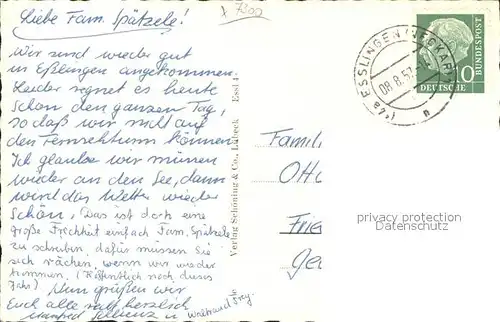 Liebe Fam. Spätzele!
Wir sind wieder gut
in Eßlingen angekommen.
Leider regnet es heute
schon den ganzen Tag,
so daß wir nicht auf
den Fernsehturm können.
Ich glaube wir müssen
wieder an den See, dann
wird das Wetter wieder
schön. Das ist doch eine
große Frechheit einfach Fam. Spätzele
zu schreiben, dafür müssen Sie
sich rächen, wenn wir wieder
kommen. (Hoffentlich noch dieses
Jahr) Nun grüßen wir
Euch alle recht herzlich
Manfred u. Waltraud Frey
7300
ESSLINGEN (NECKAR)
08.8.57
DEUTSCHE
BUNDESPOST
10
Verlag Schöning & Co., Lübeck Essl 4
Famili
Otto
Frie
Ge
privacy protection
Datenschutz